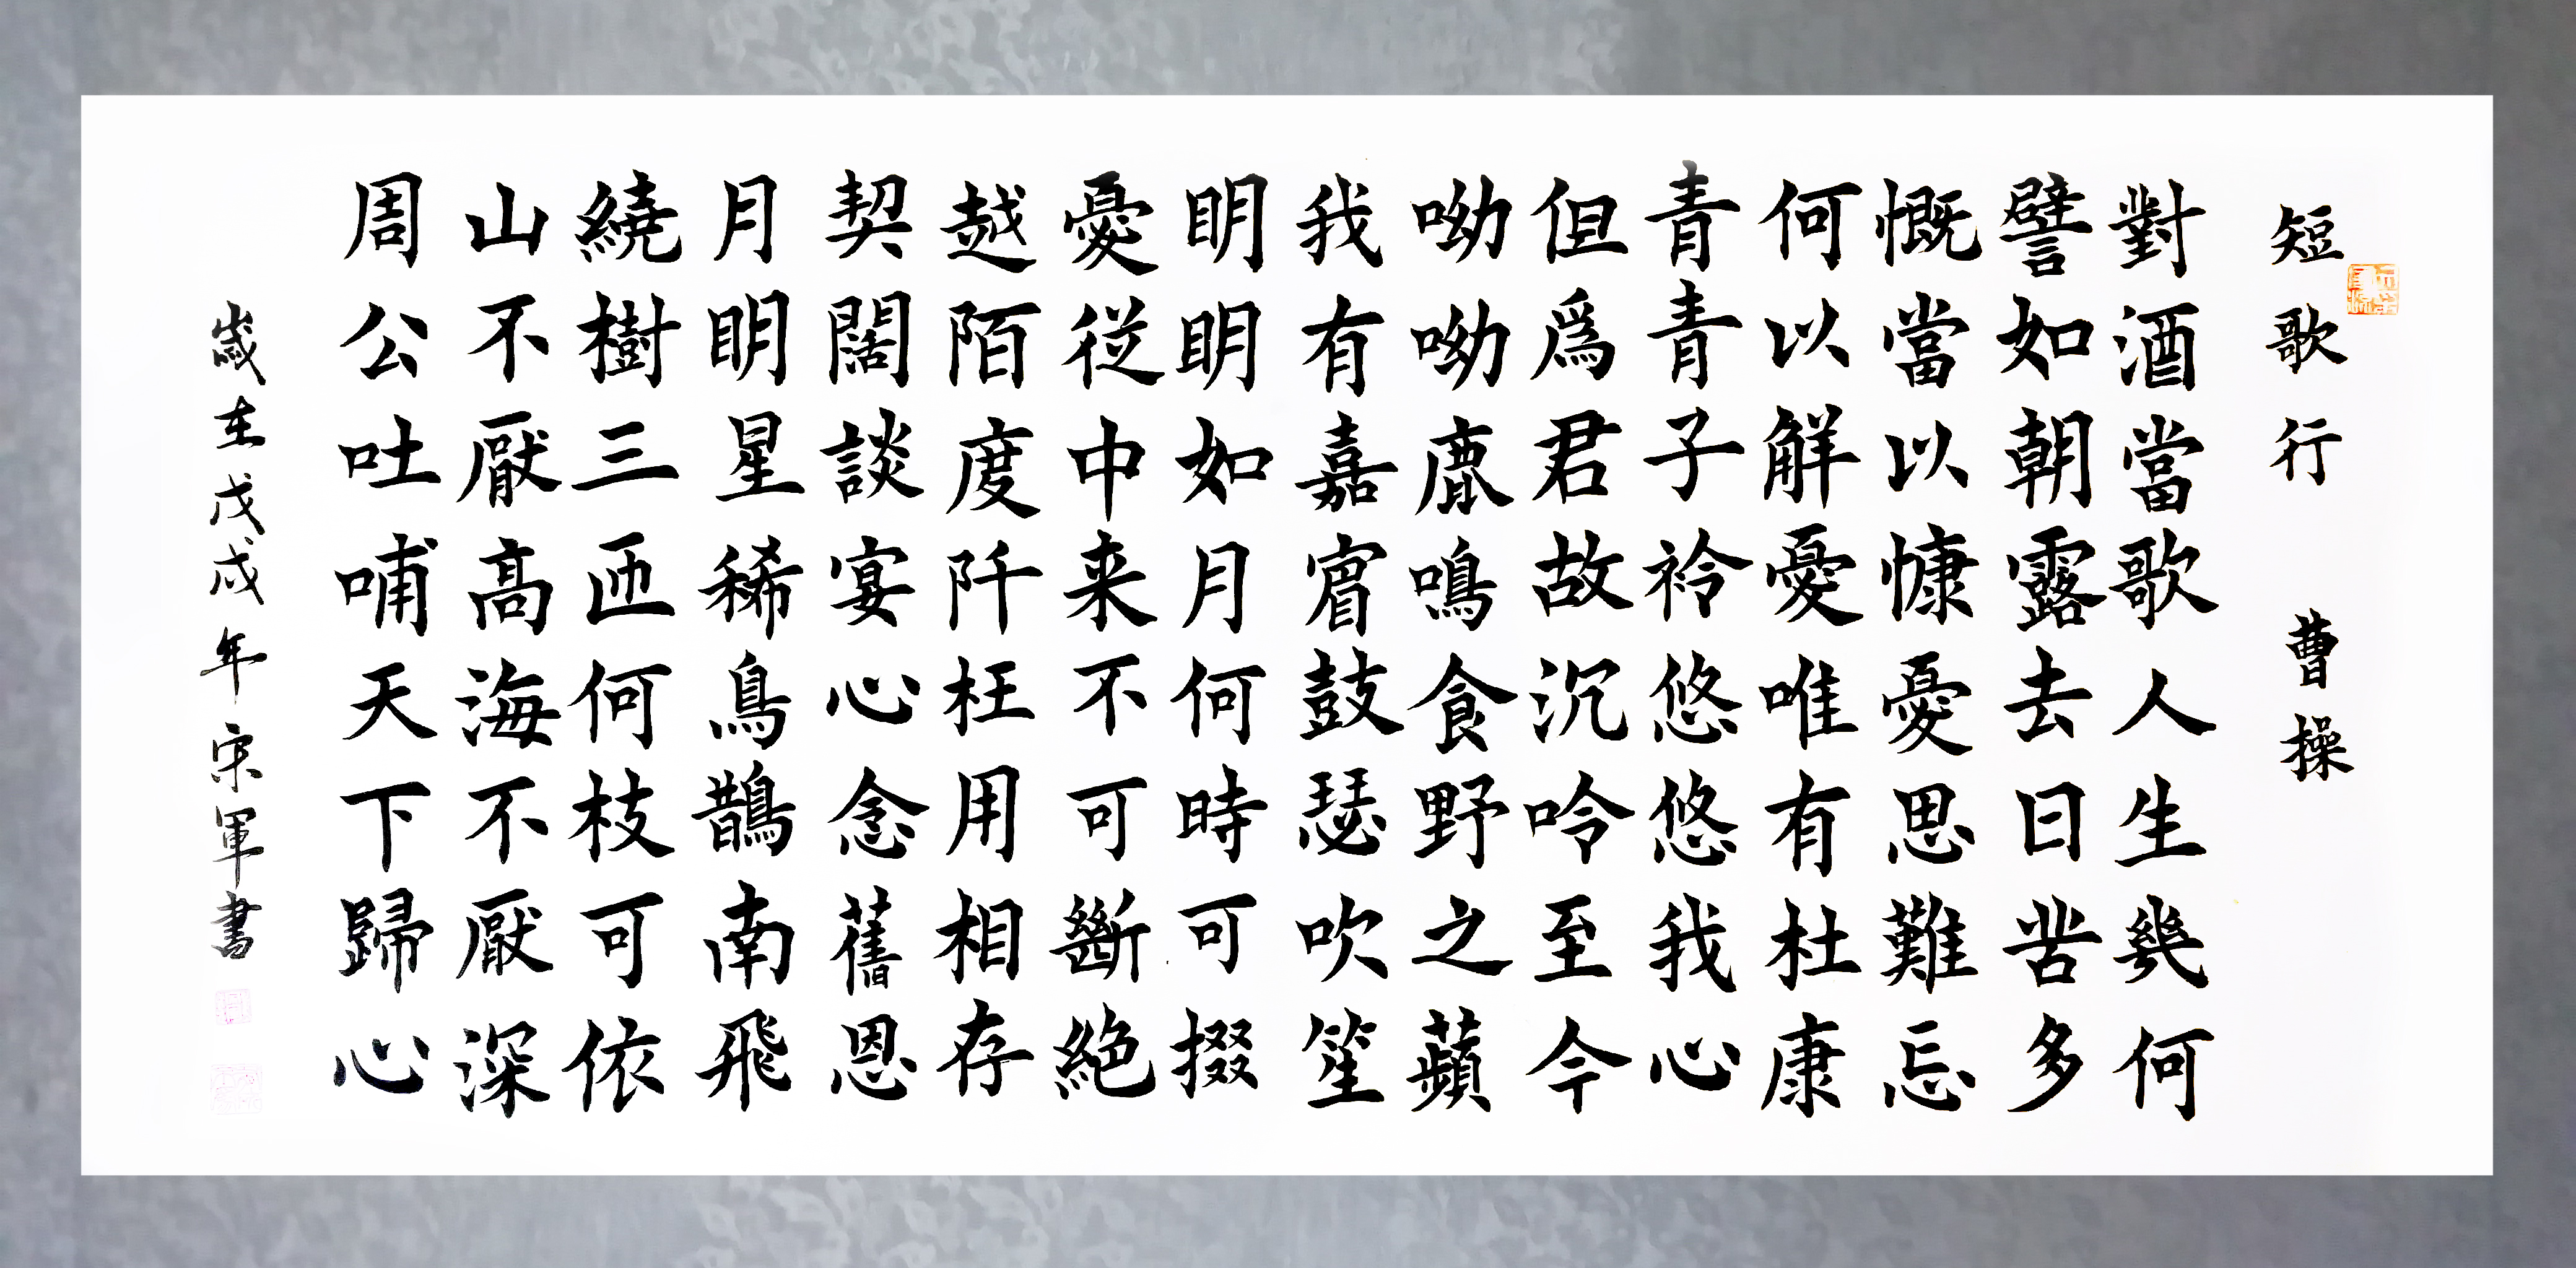 短歌行 曹操
對酒當歌人生幾何
譬如朝露去日苦多
慨當以慷憂思難忘
何以解憂唯有杜康
青青子衿悠悠我心
但爲君故沉吟至今
呦呦鹿鳴食野之蘋
我有嘉賓鼓瑟吹笙
明明如月何時可掇
憂從中来不可斷絕
越陌度阡枉用相存
契闊談宴心念舊恩
月明星稀烏鵲南飛
繞樹三匝何枝可依
山不厭高海不厭深
周公吐哺天下歸心
歲在戊戌年宋軍書